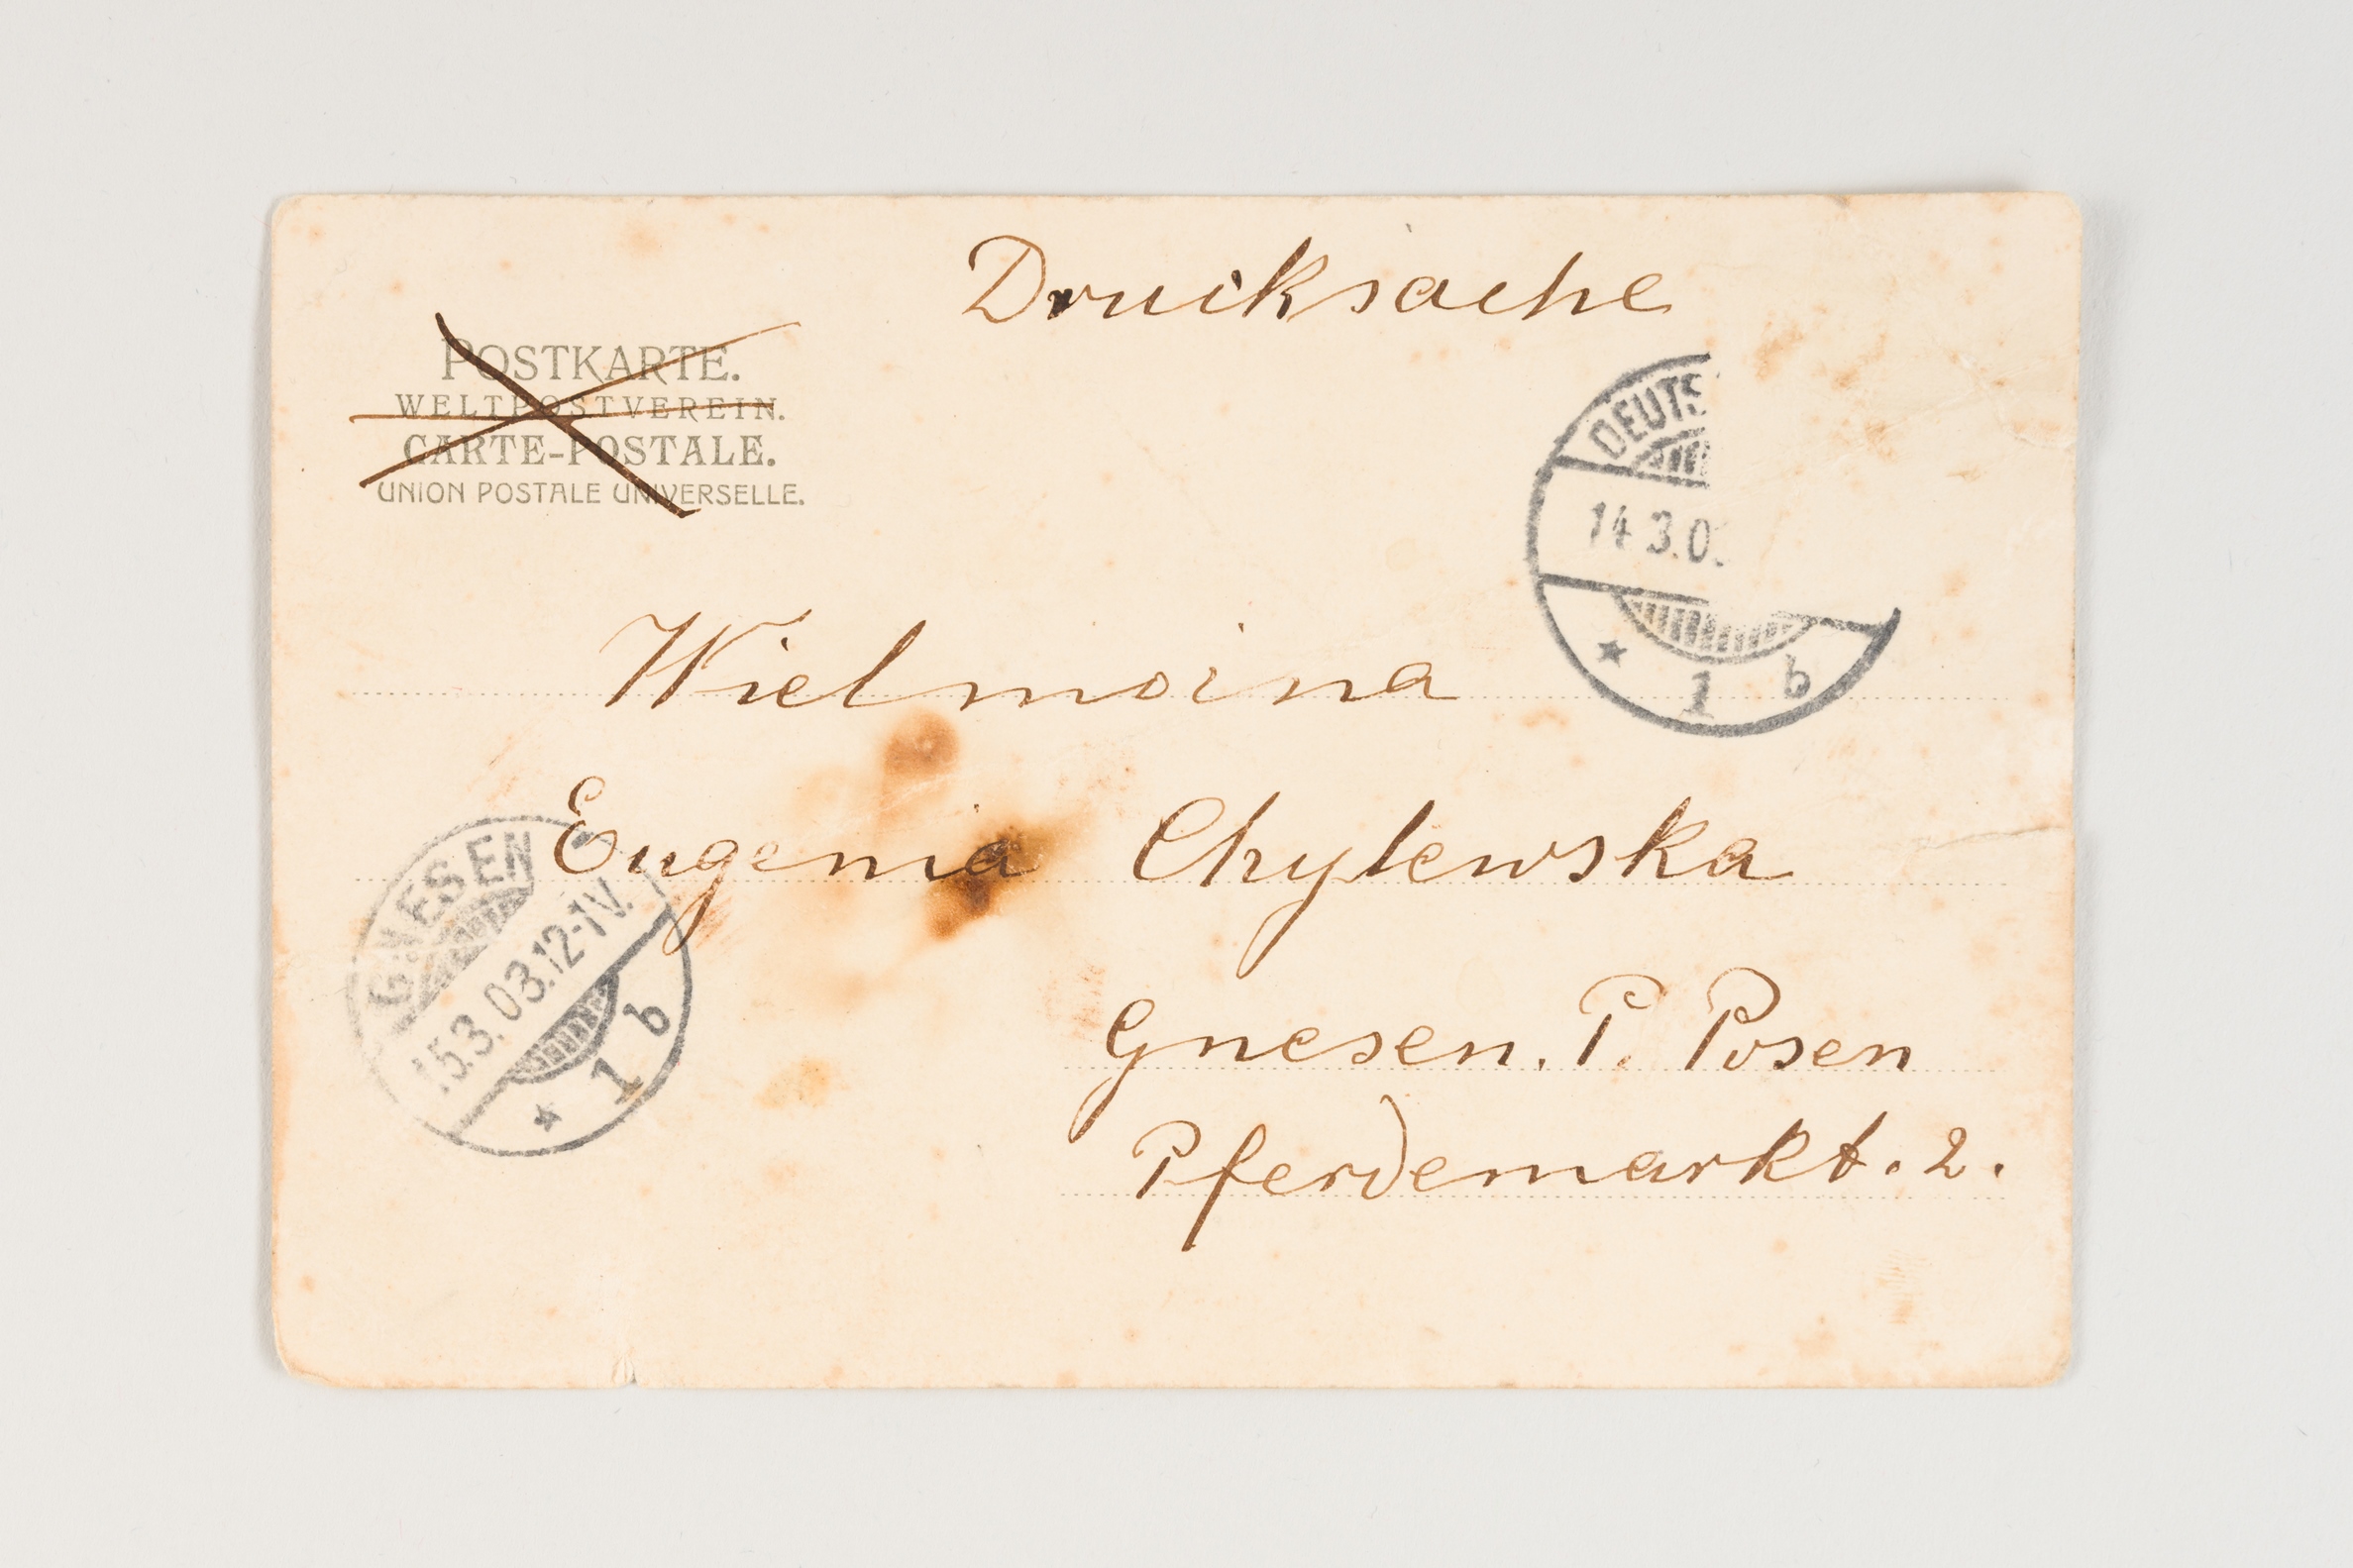 Drucksache
POSTKARTE.
WELTPOSTVEREIN.
CARTE-POSTALE.
UNION POSTALE UNIVERSELLE.
DEUTS
14 3.0
* 1 b
Wielmoina
Eugenia Chylewska
Gnesen. P. Posen
Pferdemarkt. 2.
GNESEN
15.3.03.12-1V.
* 1 b